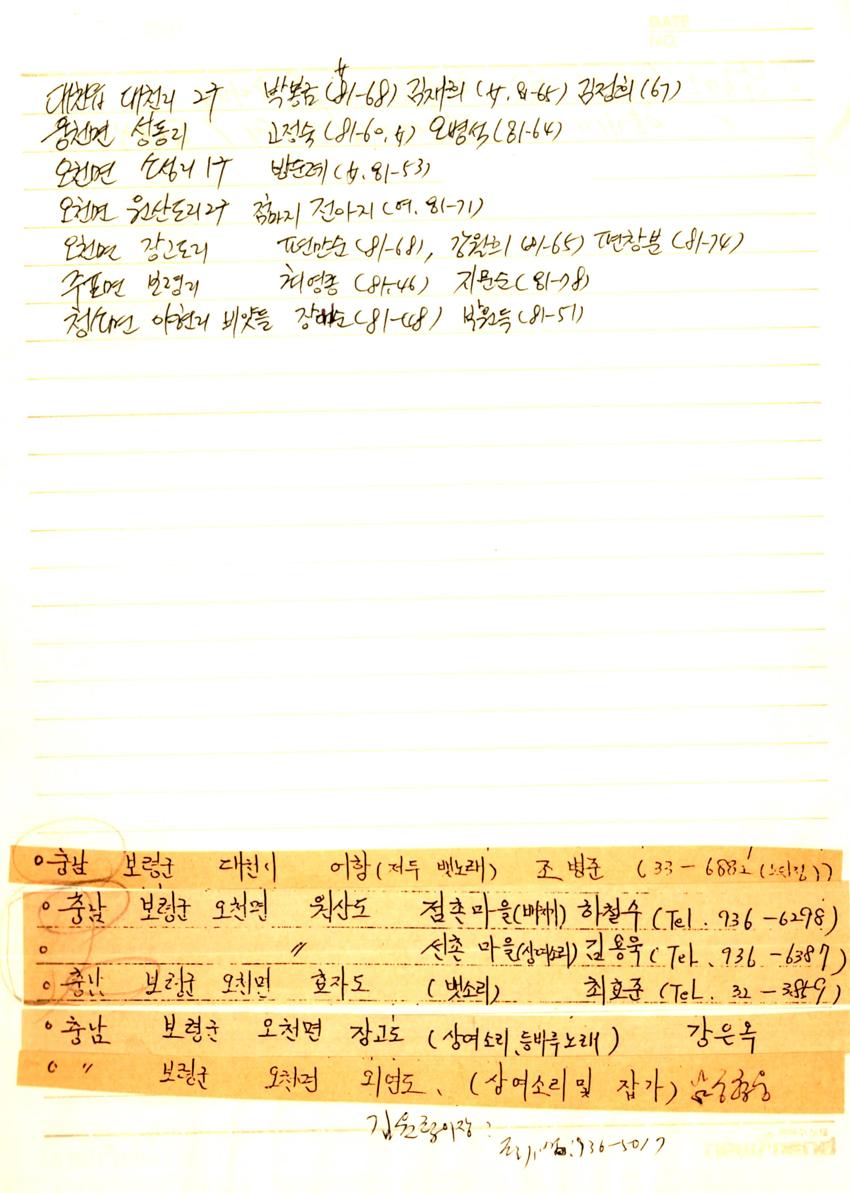 대천읍 대천리 2구 박봉금 (女 81-68) 김재희 (女, 81-65) 김정희 (67)
웅천면 성동리 고정숙 (81-60, 女) 오병석 (81-64)
오천면 소성리 1구 방순예 (女. 81-53)
오천면 원산도리 2구 점마지 전아지 (여. 81-71)
오천면 장고도리 편만순 (81-68), 강월희 (81-65) 편창분 (81-74)
주포면 보령리 최영종 (81-46) 지문순 (81-78)
청소면 야현리 장 순 (81-48) 박원득 (81-51)
o 충남 보령군 대천시 어항 (저두 뱃노래) 조병준 (33-688
o 충남 보령군 오천면 원산도 점촌마을 하철수 (Tel. 936-6298)
o 〃 선촌 마을 (상여소리) 김용욱 (Tel. 936-6387)
o 충남 보령군 오천면 효자도 (뱃소리) 최효준 (Tel. 32-3859)
o 충남 보령군 오천면 장고도 (상여소리, 등바루노래) 강은옥
o 〃 보령군 오천면 외연도, (상여소리 및 잡가)
김 이장:
936-5017